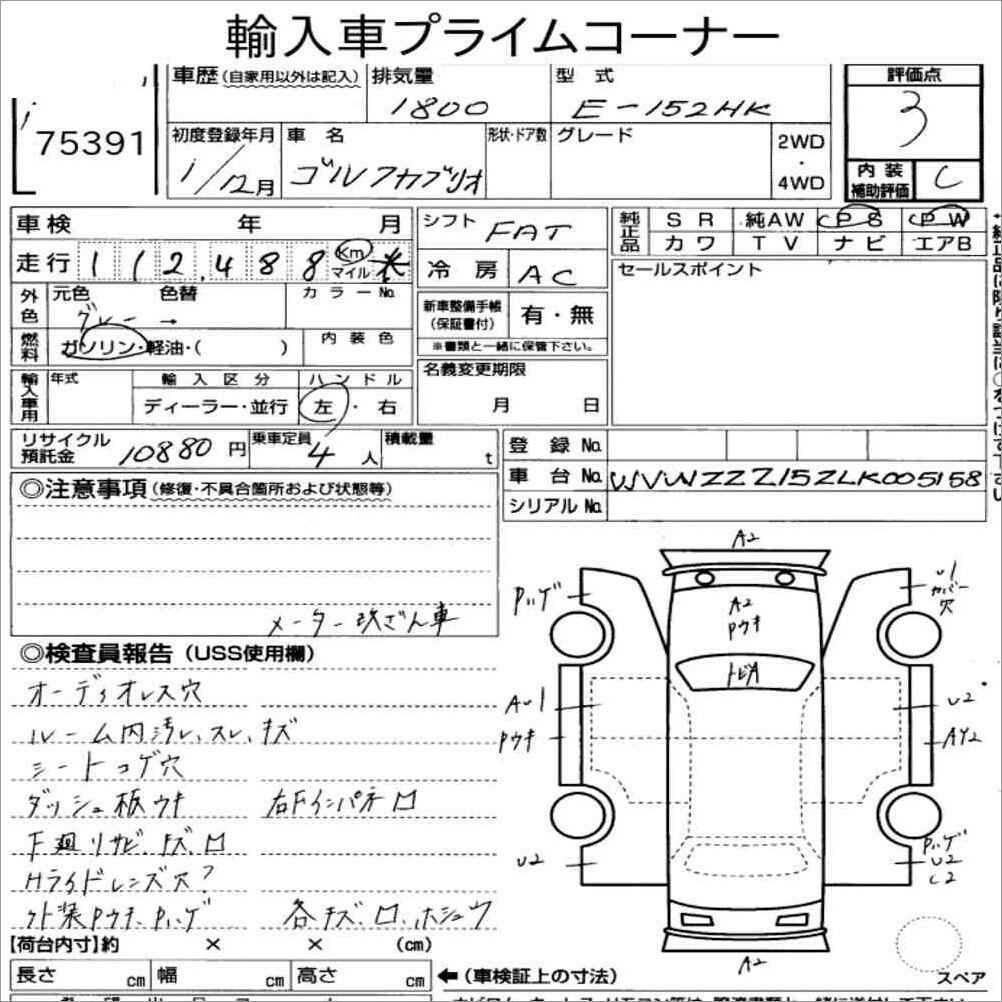 輸入車プライムコーナー
75391
車歴(自家用以外は記入) 排気量 型式 評価点
1800 E-152HK 3
初度登録年月 車名 形状・ドア数 グレード 2WD・4WD 内装補助評価 C
1/12月 ゴルフカブリオ
車検 年 月
シフト FAT
純正品 SR 純AW PS PW
カワ TV ナビ エアB
走行 112,488 Km マイル
冷房 AC
セールスポイント
外色 元色 色替 カラーNo.
グレー →
新車整備手帳(保証書付) 有・無
※書類と一緒に保管下さい。
燃料 ガソリン・軽油・( ) 内装色
名義変更期限
月 日
輸入車用 年式 輸入区分 ハンドル
ディーラー・並行 左・右
リサイクル預託金 10880円 乗車定員 4人 積載量 t
登録No.
車台No. WVWZZZ15ZLK005158
シリアルNo.
◎注意事項(修復・不具合箇所および状態等)
メーター改ざん車
◎検査員報告(USS使用欄)
オーディオレス穴
ルーム内汚レ、スレ、キズ
シートコゲ穴
ダッシュ板ウキ 右Fインパネロ
F廻リサビ、キズ、ロ
Hライドレンズ穴?
外装Pウキ、Pハゲ 各キズ、ロ、ホシュウ
A2
Pハゲ
U1
カバー
穴
A2
Pウキ
トビA
AU1
Pウキ
U2
AY2
U2
Pハゲ
U2
C2
A2
スペア
【荷台内寸】約 × × (cm)
長さ cm 幅 cm 高さ cm ←(車検証上の寸法)